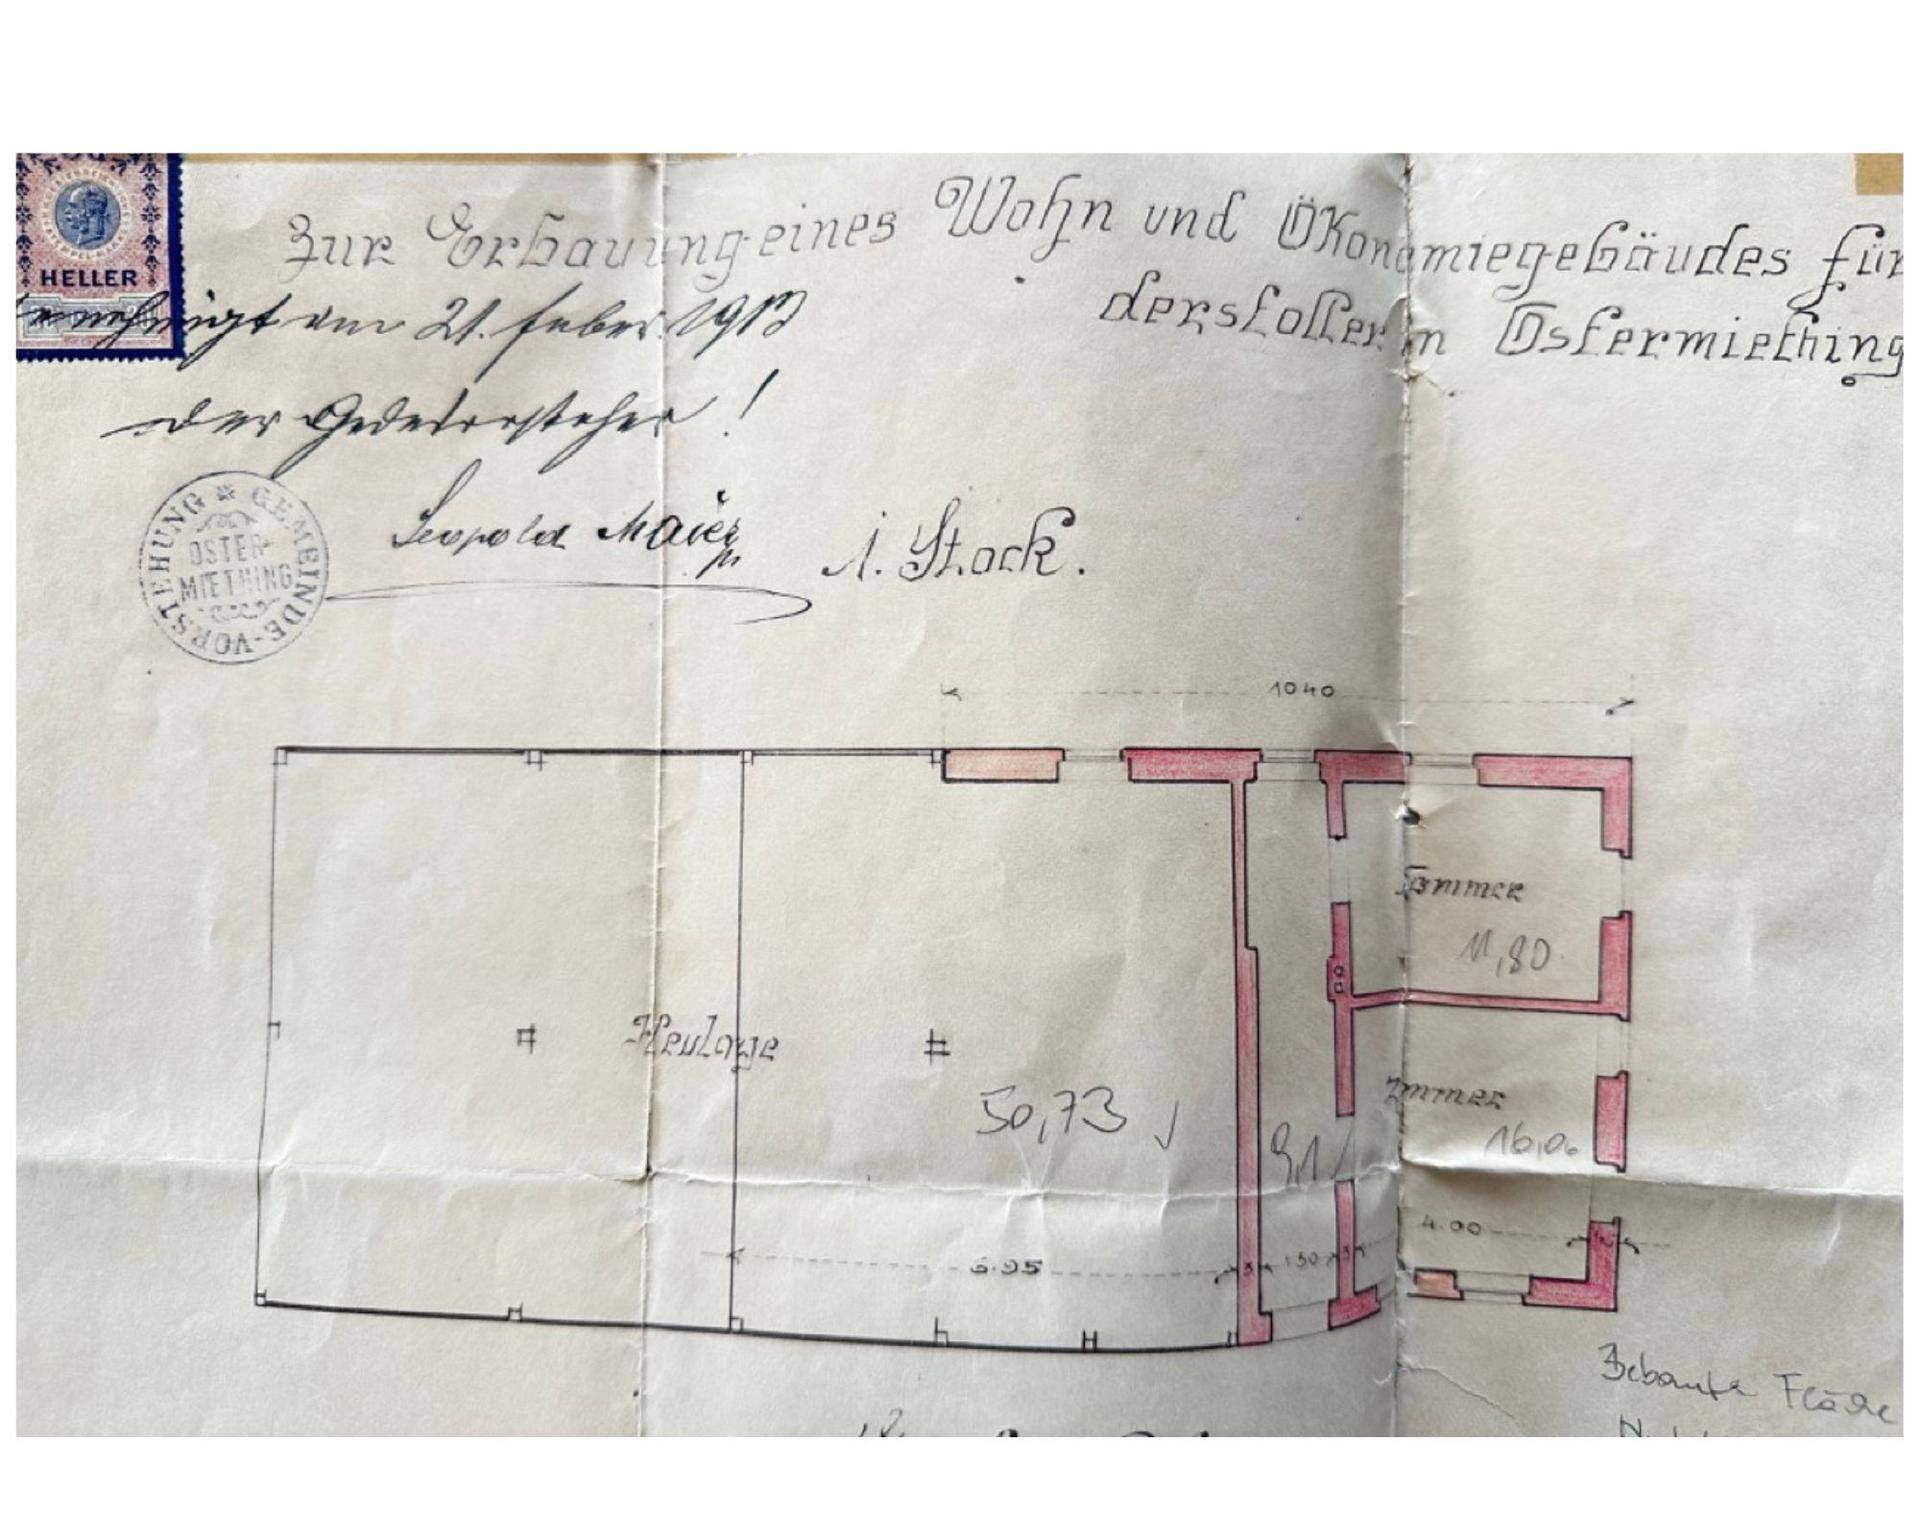 HELLER
Zur Erbauung eines Wohn und Ökonomiegebäudes für
derstoller in Ostermiething
genehmigt am 21. Feber 1913
Der Gedevorsteher!
Leopold Maier
GEMEINDE-VORSTEHUNG
OSTER-
MIETHING
1. Stock.
1040
Kammer
11,80
Heulage
50,73
Zimmer
9,1
16,06
4.00
6.95
130
Bebaute Fläche